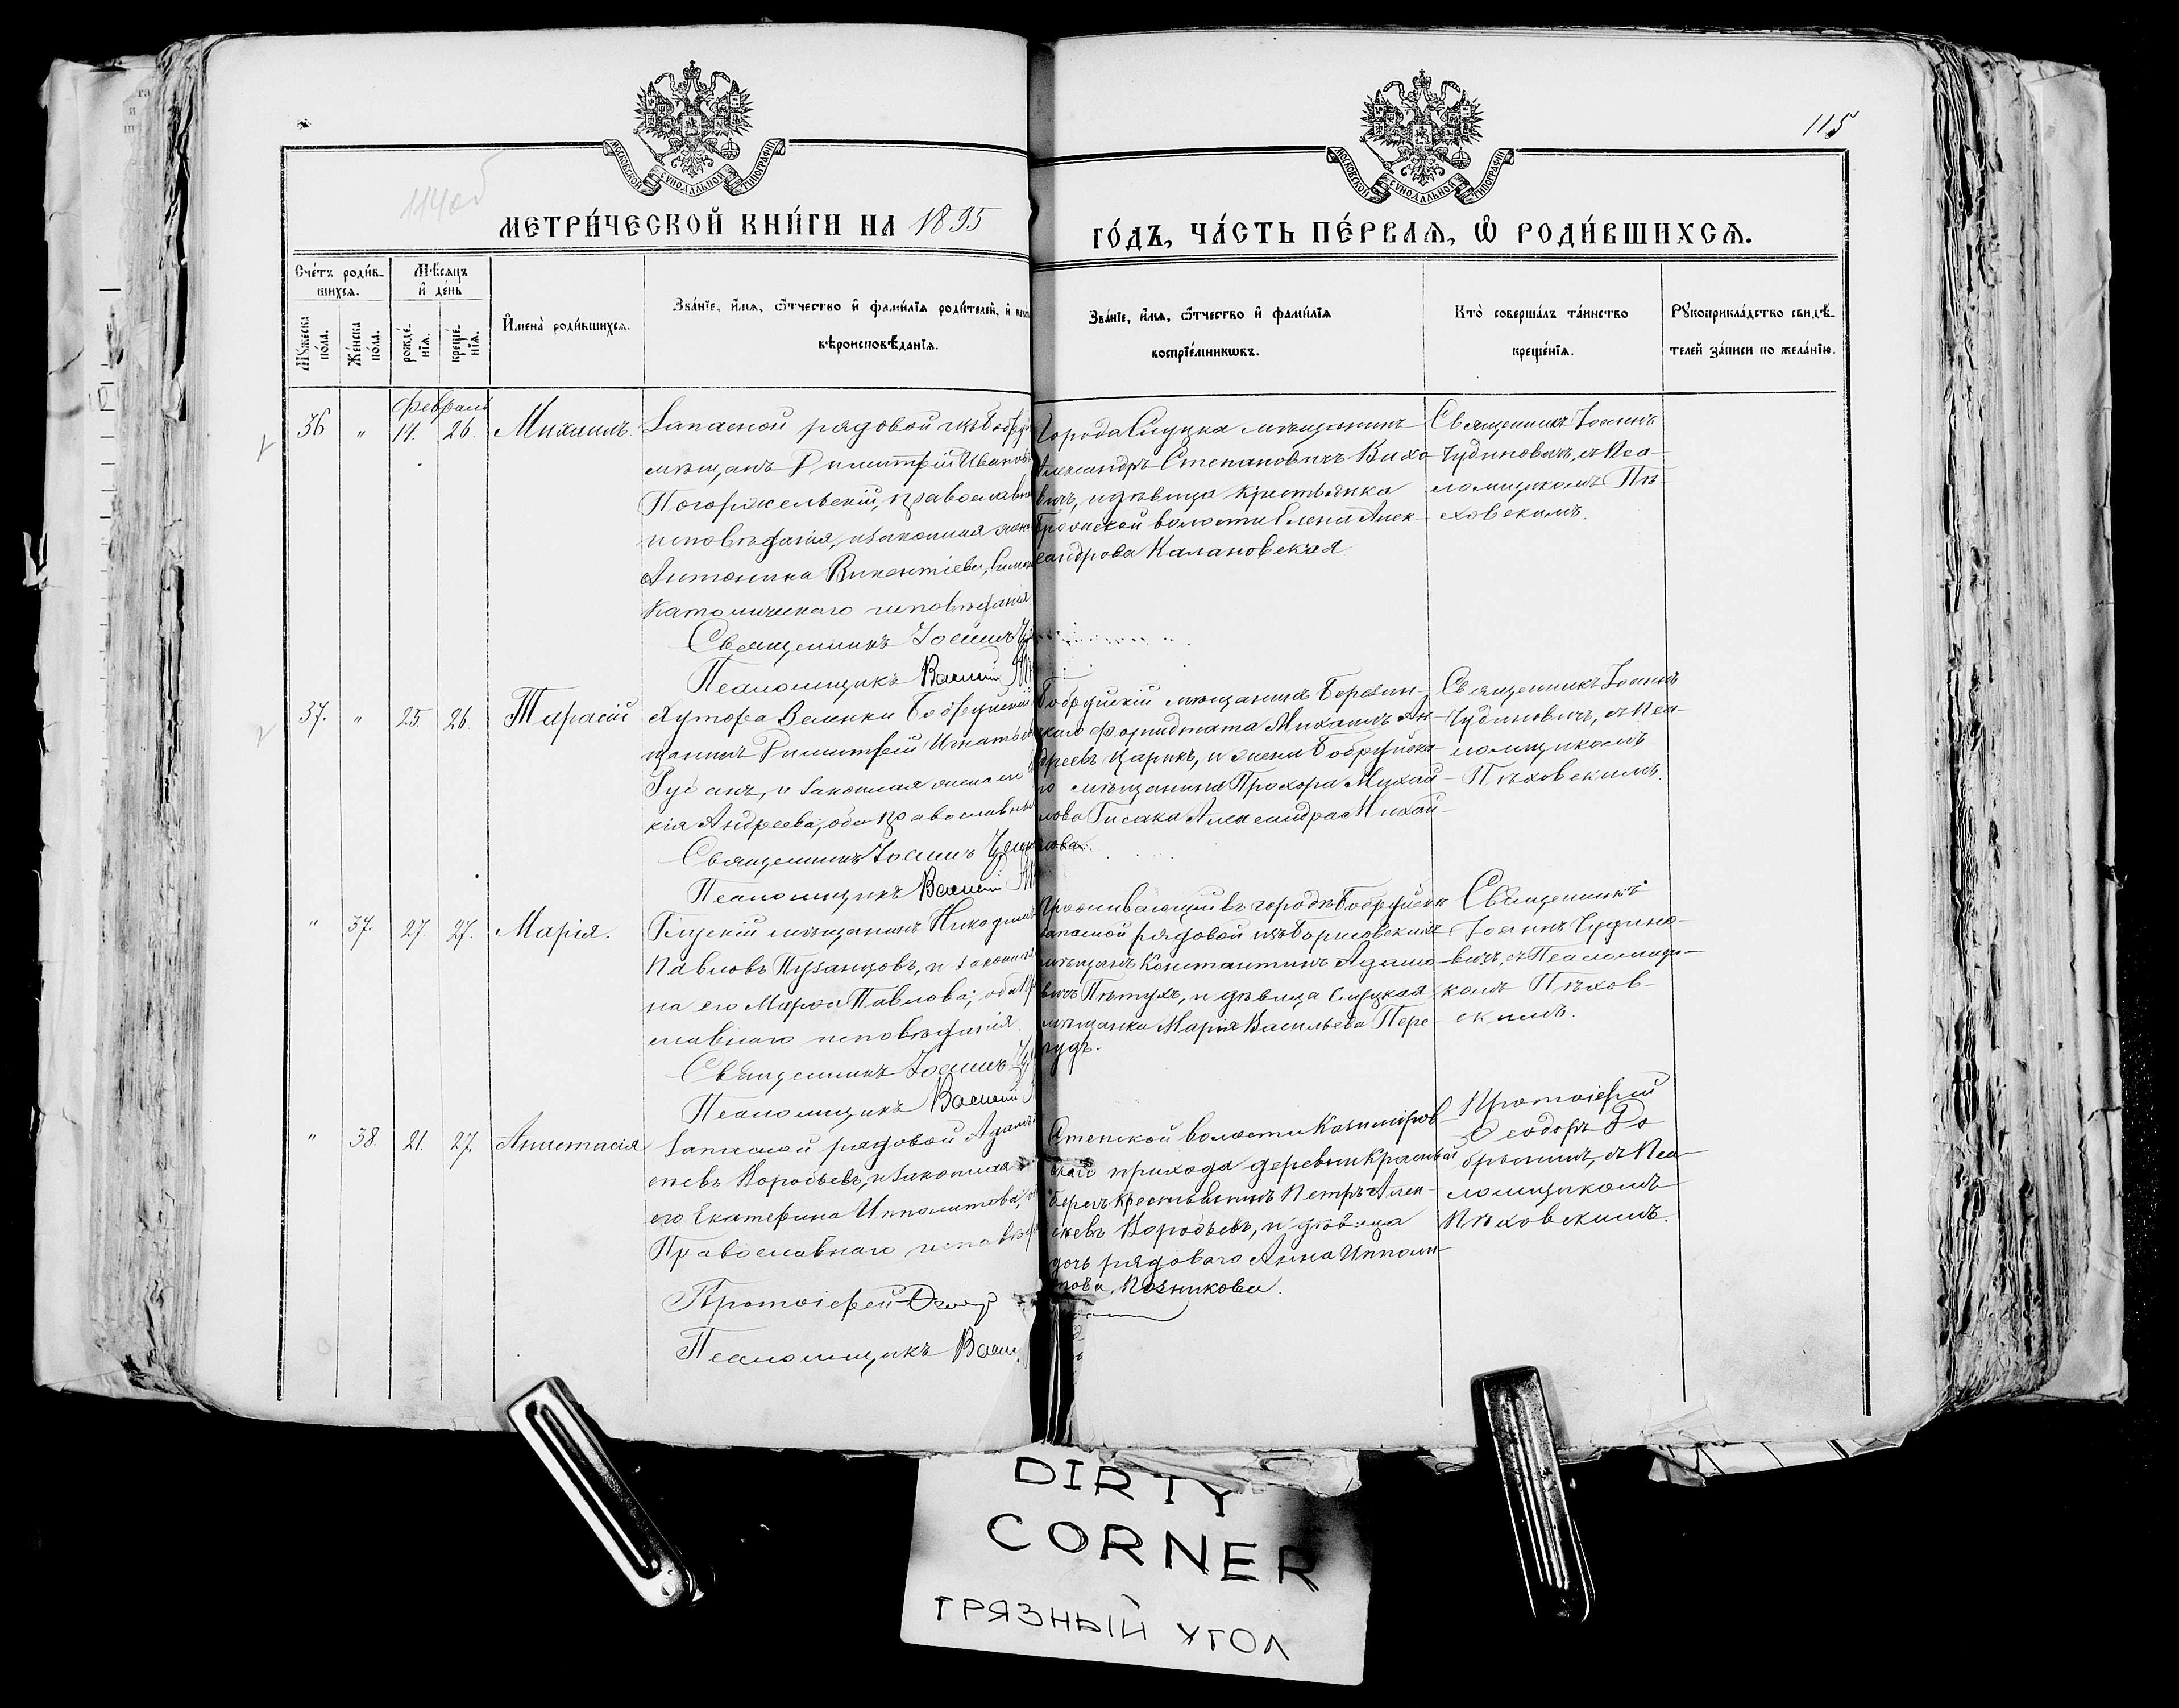 115
114об
МОСКОВСКОЙ СУНОДАЛЬНОЙ ТИПОГРАФІИ
МОСКОВСКОЙ СУНОДАЛЬНОЙ ТИПОГРАФІИ
МЕТРИ́ЧЕСКОЙ КНИ́ГИ НА 1895
ГО́ДЪ, ЧА́СТЬ ПЕ́РВАЯ, Ѽ РОДИ́ВШИХСЯ.
Сче́тъ роди́в-
шихся.
Мѣ́сяцъ
и҆ де́нь
Му́жеска
по́ла.
Же́нска
по́ла.
рожде́-
нія.
креще́-
нія.
И҆мена̀ роди́вшихся.
Зва́нїе, и҆́мя, ѻ҆́тчество и҆ фами́лїя роди́телей, и҆
вѣроисповѣ́данїя.
Зва́нїе, и҆́мя, ѻ҆́тчество и҆ фами́лїя
воспрїе́мникωвъ.
Кто̀ соверша́лъ та́инство
креще́нїя.
Рукоприкла́дство свидѣ́-
телей за́писи по жела́нїю.
Февраль
36 " 14. 26. Михаилъ.
Запасной рядовой изъ
мѣщанъ Димитрій
Погоржельскій,
исповѣданія, и законная
Антонина Викентіева,
Католическаго исповѣданія
Священникъ Іоаннъ
Псаломщикъ Василій
Города Слуцка мѣщанинъ
Александръ Степановичъ Бихо-
вичъ, и дѣвица крестьянка
волости Елена Алек-
сандрова Калановская.
Священникъ Іоаннъ
Чудиновичъ, съ Пса-
ломщикомъ Пѣ-
ховскимъ.
37. " 25. 26. Тарасій
Хутора Веленки Бобруйскій
щанинъ Димитрій
и законная жена его
кія Андреева, оба
Священникъ Іоаннъ
Псаломщикъ Василій
Бобруйскій мѣщанинъ Березин-
скаго форштата Михаилъ Ан-
дреевъ Царикъ, и жена Бобруйска-
го мѣщанина Прохора Михай-
лова Гисака Александра Михай-
лова.
Священникъ Іоаннъ
Чудиновичъ, съ Пса-
ломщикомъ
Пѣховскимъ.
" 37. 27 27. Марія.
Глускій мѣщанинъ
Павловъ Пузанцовъ, и
на его Марѳа Павлова; оба
славнаго исповѣданія.
Священникъ Іоаннъ
Псаломщикъ Василій
Проживающій въ городѣ Бобруйскѣ
запасной рядовой изъ Борисовскихъ
мѣщанъ Константинъ Адамо-
вичъ Пѣтухъ, и дѣвица Слуцкая
мѣщанка Марія Васильева Пере-
гудъ.
Священникъ
Іоаннъ Чудино-
вичъ, съ Псаломщи-
комъ Пѣхов-
скимъ.
" 38. 21. 27. Анастасія
Запасной рядовой
Воробьевъ, и законная
его Екатерина Ипполитова,
Православнаго
Протоіерей
Псаломщикъ
Степской волости Казиміров-
скаго прихода деревни Красный
берегъ крестьянинъ Петръ Алек-
сѣевъ Воробьевъ, и дѣвица
дочь рядоваго Анна Ипполи-
това, Позникова.
Протоіерей
Ѳеодоръ До-
брынинъ, съ Пса-
ломщикомъ
Пѣховскимъ.
DIRTY
CORNER
ГРЯЗНЫЙ УГОЛ